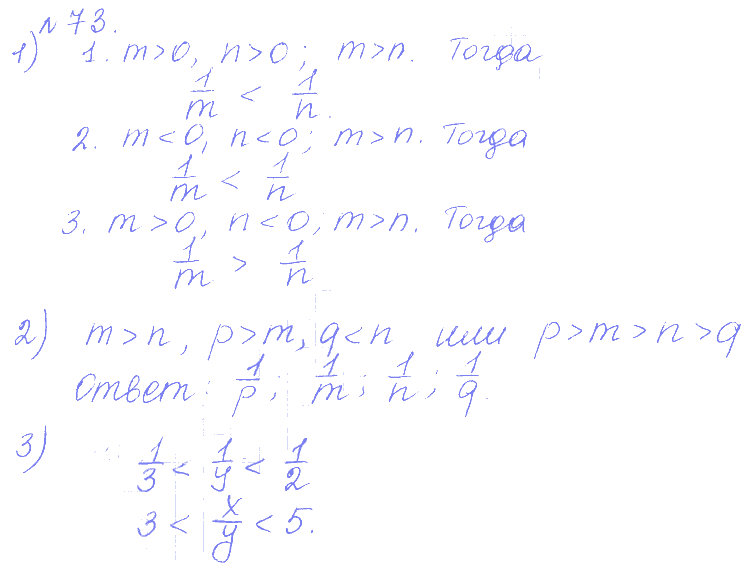 № 73.
1) 1. m>0, n>0; m>n. Тогда
1/m < 1/n.
2. m<0, n<0; m>n. Тогда
1/m < 1/n
3. m>0, n<0; m>n. Тогда
1/m > 1/n
2) m>n, p>m, q<n или p>m>n>q
Ответ: 1/p; 1/m; 1/n; 1/q.
3) 1/3 < 1/y < 1/2
3 < x/y < 5.